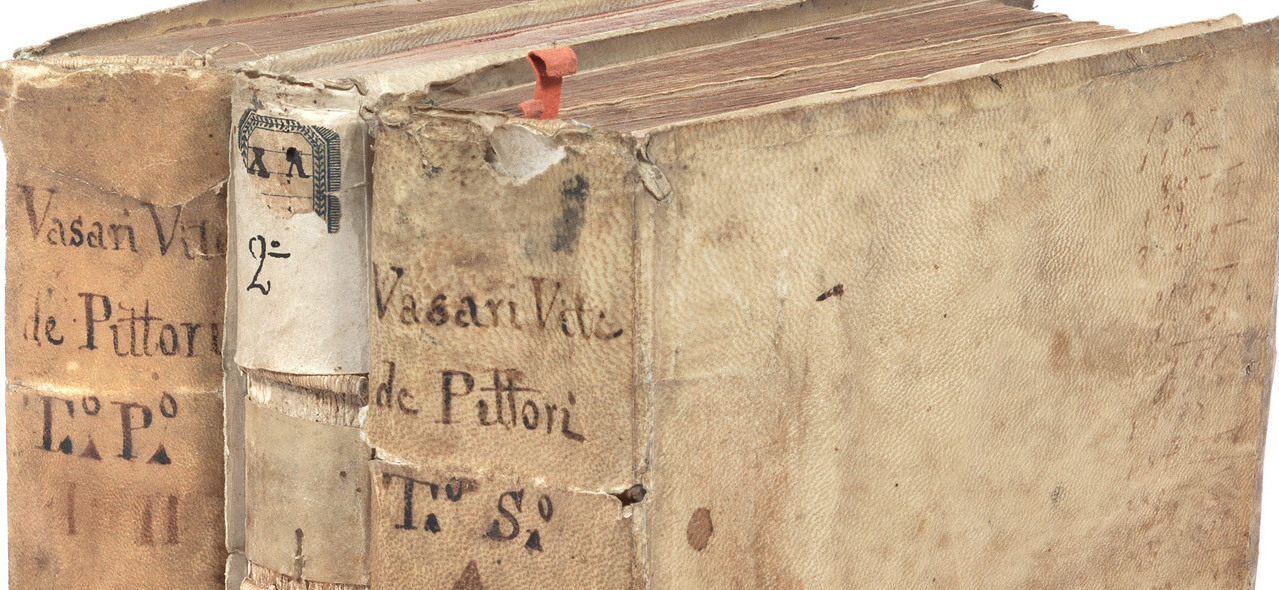 Vasari Vite
de Pittori
T.º P.º
I II
2º
Vasari Vite
de Pittori
T.º S.º